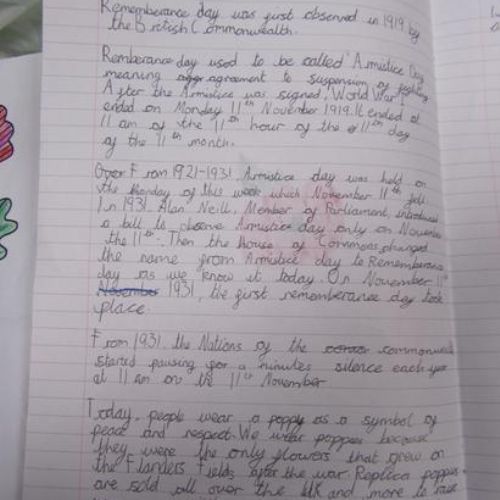 Rememberance day was first observed in 1919 by
the British Commonwealth.
Remberance day used to be called 'Armistice Day
meaning agreement to suspension of fighting
After the Armistice was signed, World War 1
ended on Monday 11th November 1919. It ended at
11 am of the 11th hour of the 11th day
of the 11th month.
From 1921-1931, Armistice day was held on
the Monday of this week which November 11th fell.
In 1931 Alan Neill, Member of Parliament, introduced
a bill to observe Armistice day only on November
the 11th. Then the house of Commons changed
the name from Armistice day to Rememberance
day as we know it today. On November 11th
November 1931, the first rememberance day took
place.
From 1931 the Nations of the commonwealth
started pausing for a minutes silence each year
at 11 am on the 11th November
Today, people wear a poppy as a symbol of
peace and respect. We wear poppies because
they were the only flowers that grew on
the Flanders Fields after the war. Replica poppies
are sold all over the UK and more to raise